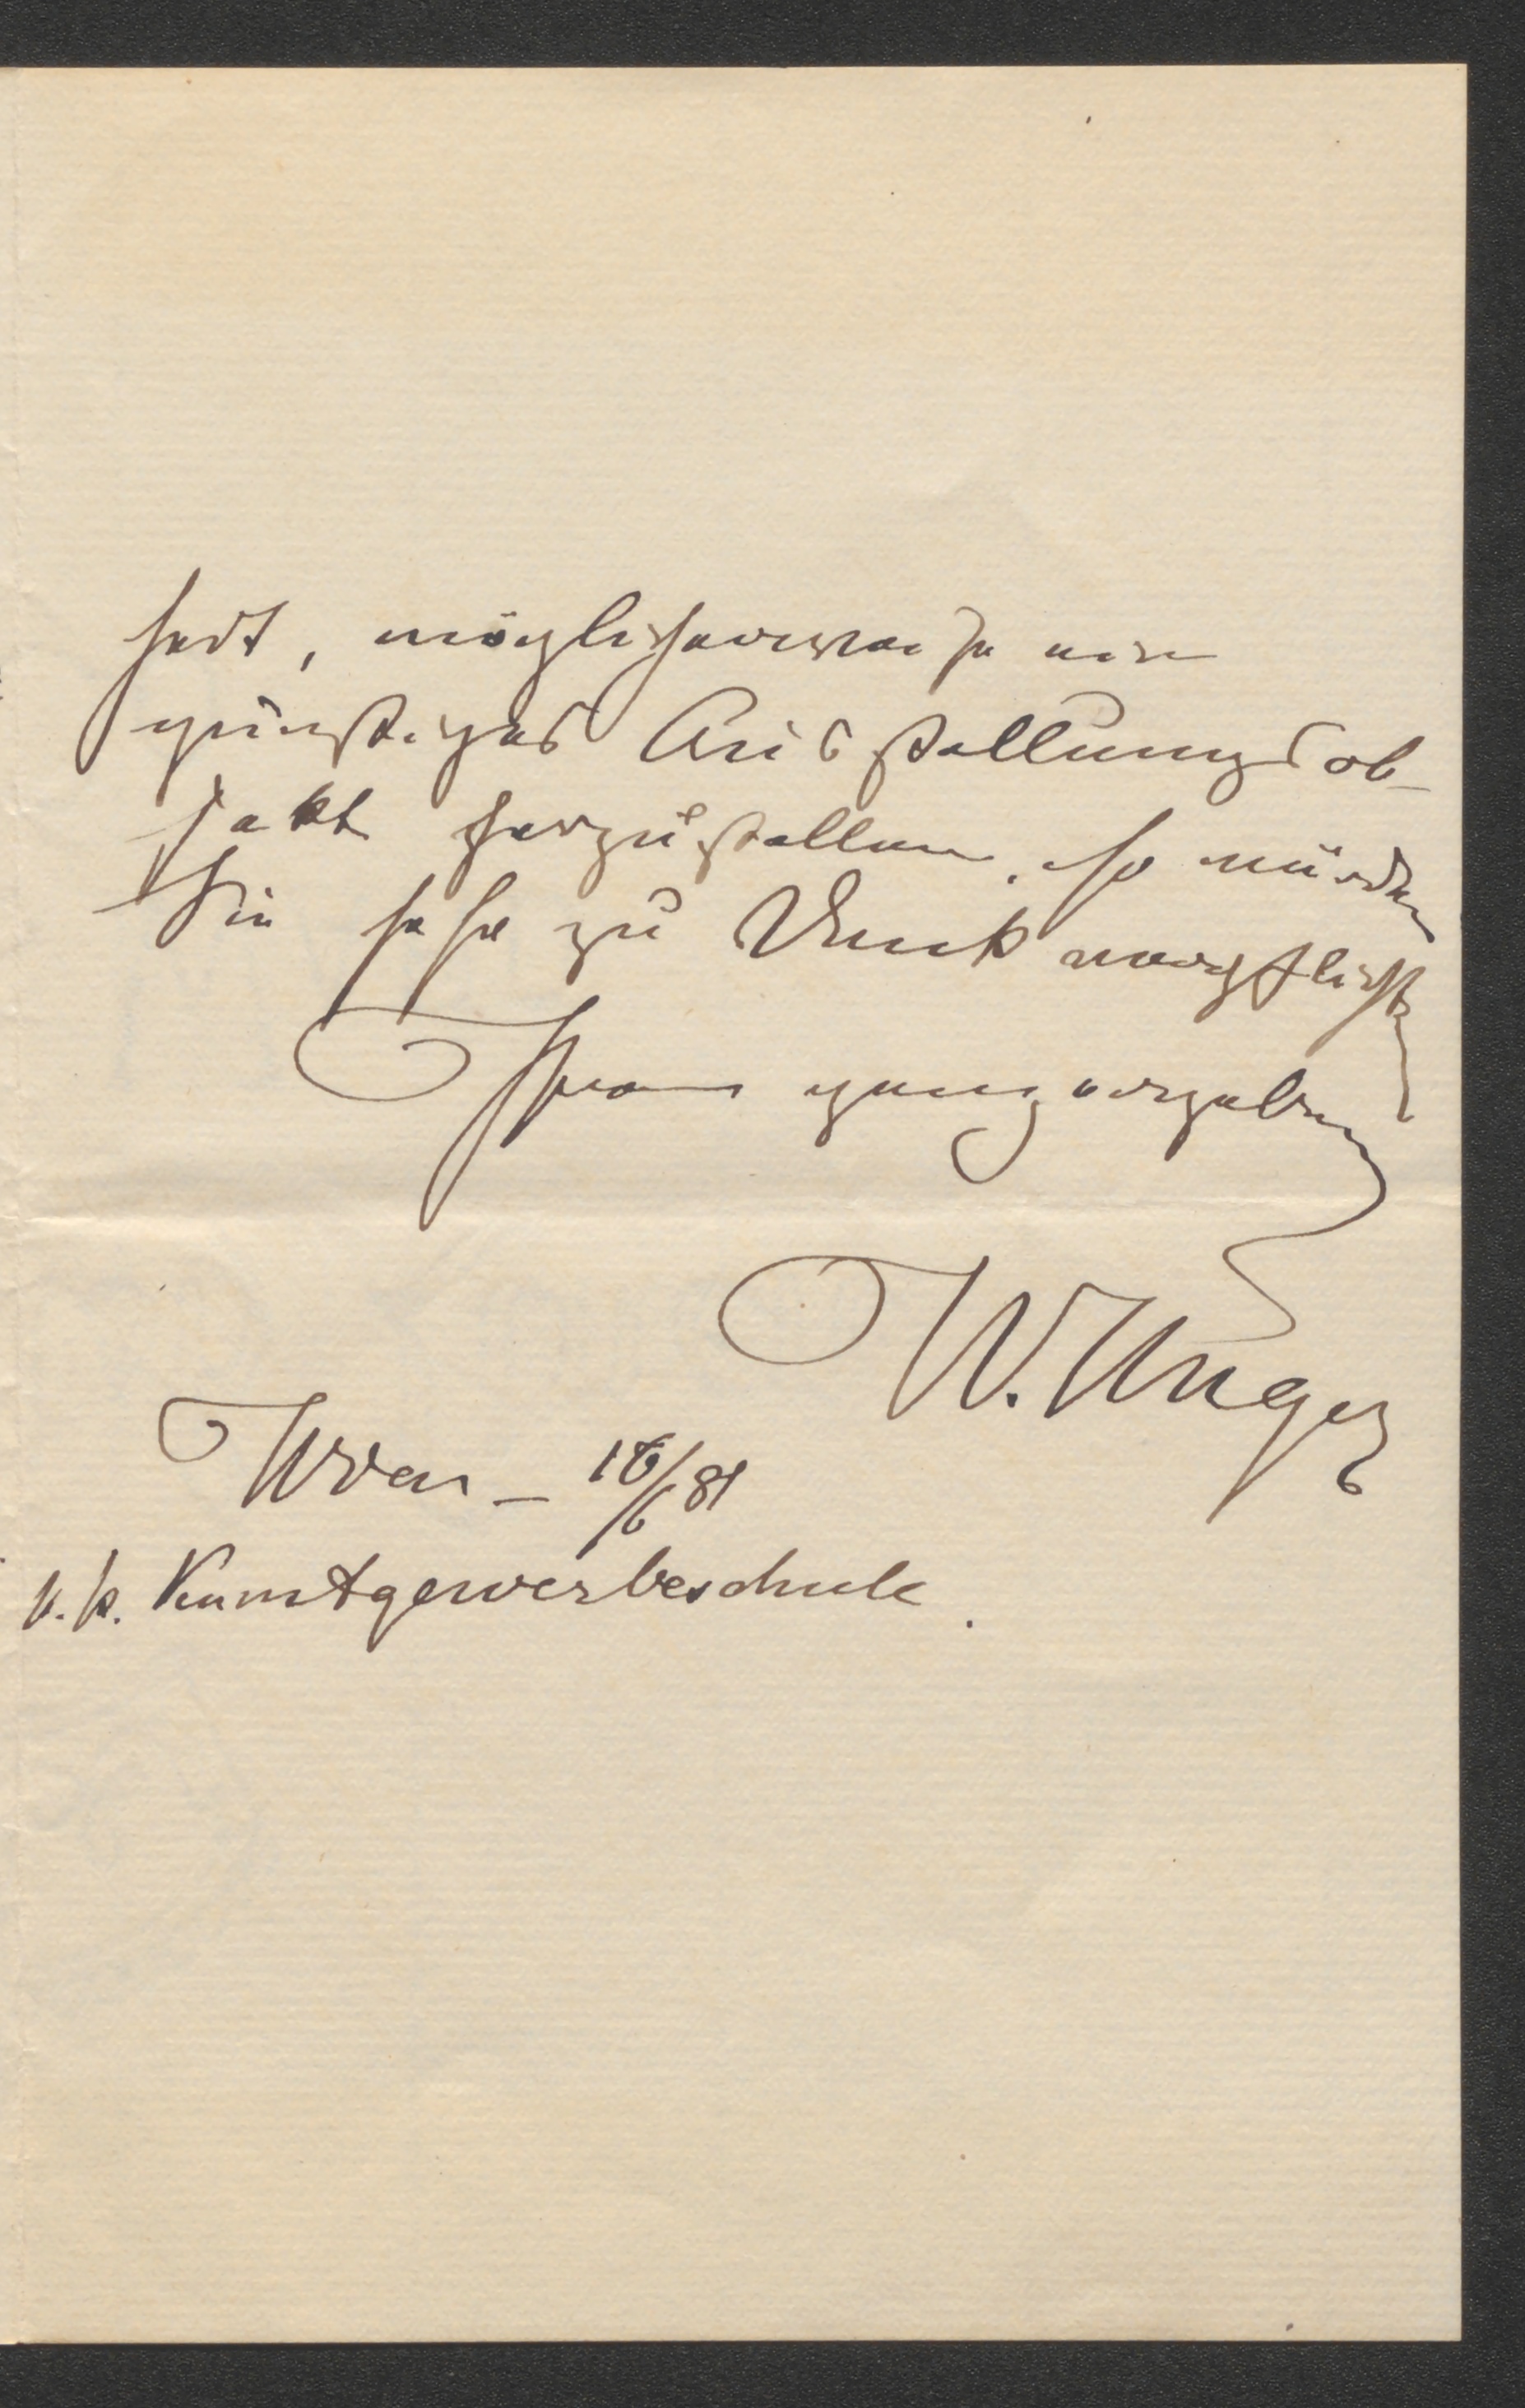 heit, möglicherweise ein
günstiges Ausstellungsob-
jekt herzustellen, so würden
Sie sehr zu Dank verpflichten
Ihren ganz ergebenen
W. Unger
Wien – 16/6 81
k.k. Kunstgewerbeschule.